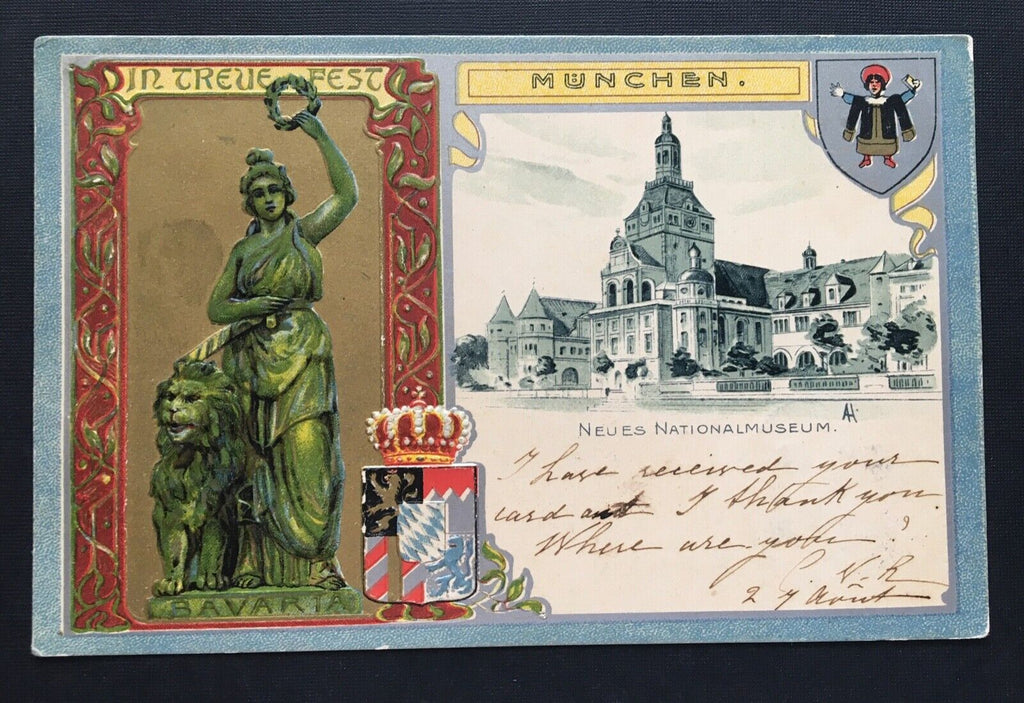 IN TREUE FEST
MÜNCHEN.
BAVARIA
NEUES NATIONALMUSEUM.
AH.
I have received your
card and I thank you
Where are you?
V. R
27 Août